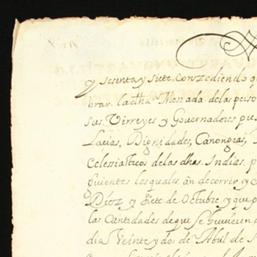 y sesenta y siete conzediendo q
brar la dha Mesada de la perso
sas Virreyes y Governadores pu
Lauias, Dignidades, Canongias,
Celesiasticos de las dhas Indias, p
quientes los quales an de correr, y C
Diez y siete de Octubre y qui p
las Cantidades de que se huuieren
dia Veinte y dos de Abril de S